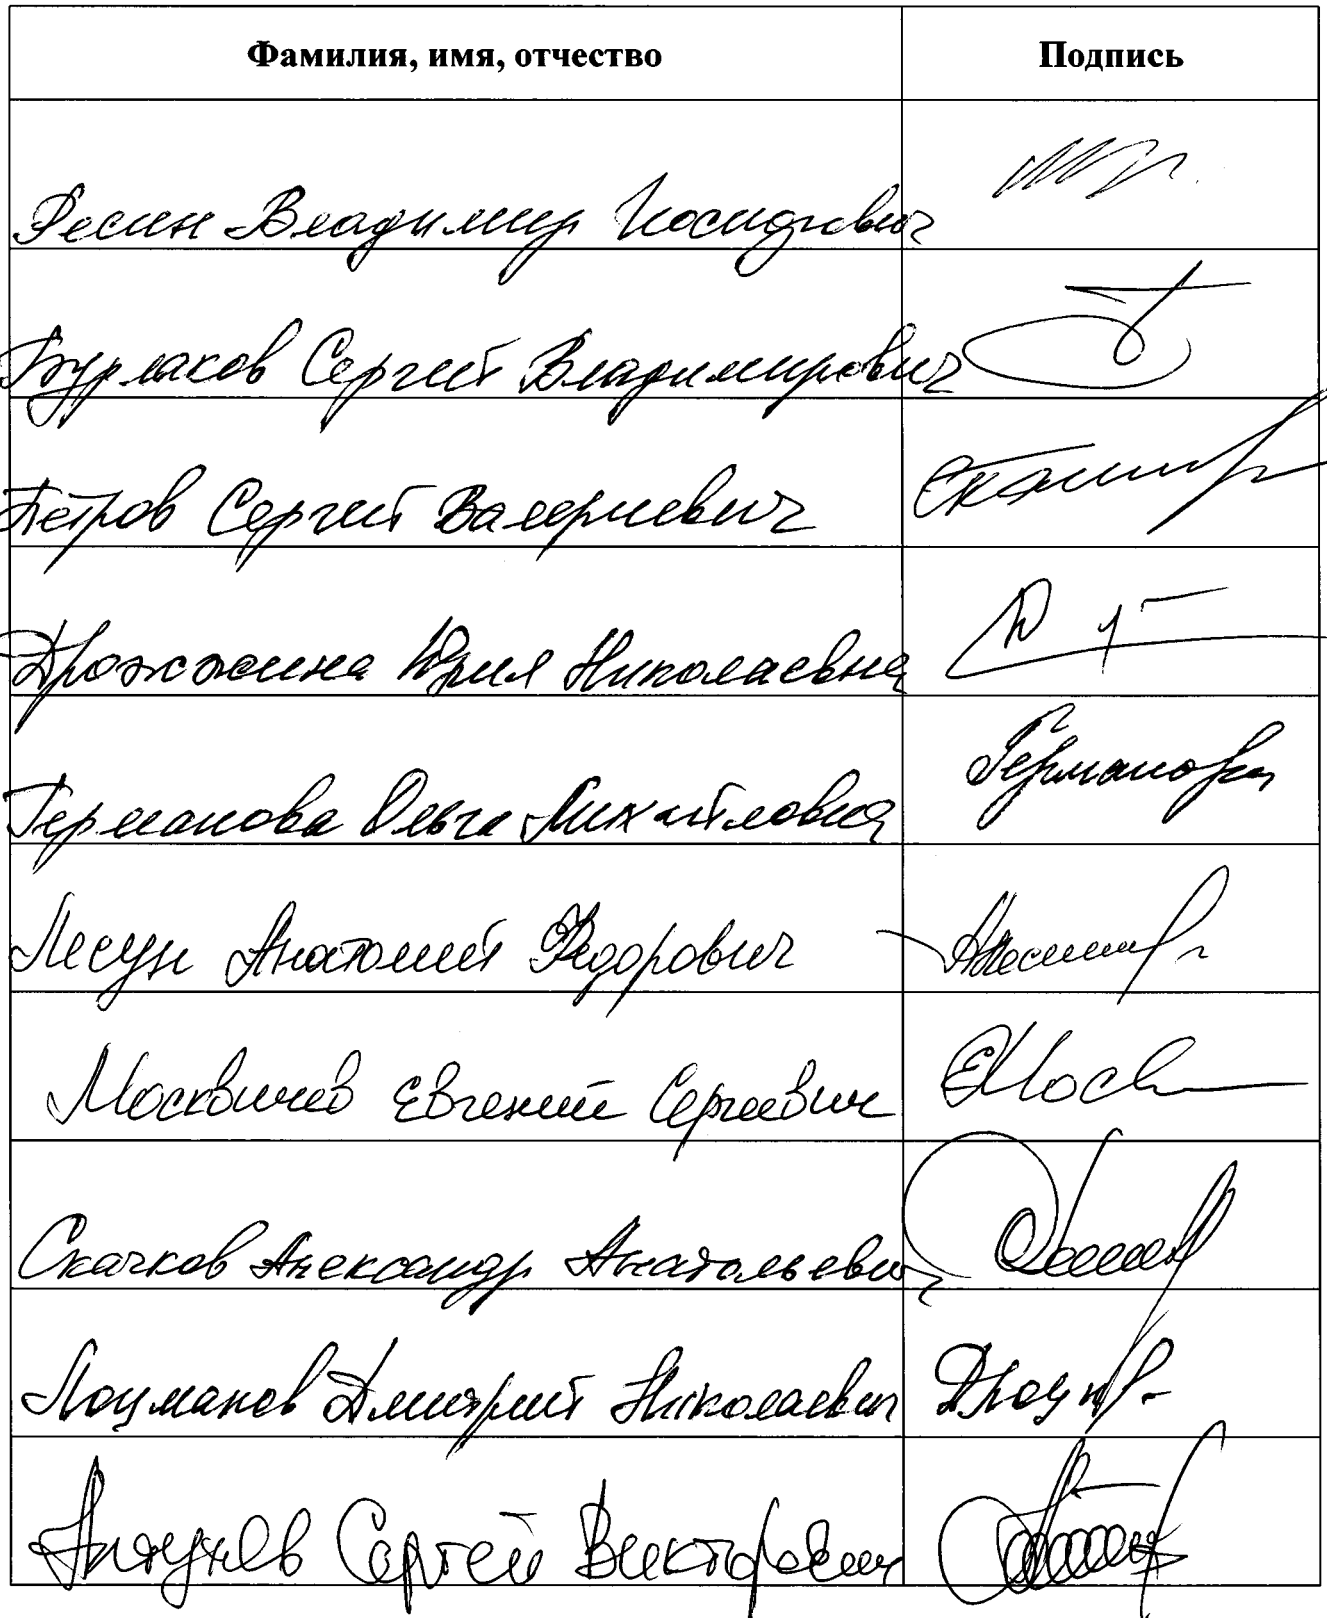 Фамилия, имя, отчество Подпись
Ресин Владимир Иосифович
Бурлаков Сергей Владимирович
Петров Сергей Валериевич
Дрожжина Юрия Николаевна
Германова Ольга Михайловна Германова
Лесун Анатолий Федорович
Москвичев Евгений Сергеевич ЕМоск
Скачков Александр Анатольевич
Лоцманов Дмитрий Николаевич
Сергей Викторович